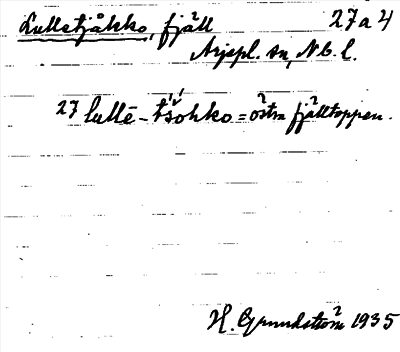 Lulletjåkko, fjäll 27a4
Arjepl. sn, Nb. l.
27 lullē-tšohko = östra fjälltoppen.
H. Grundström 1935